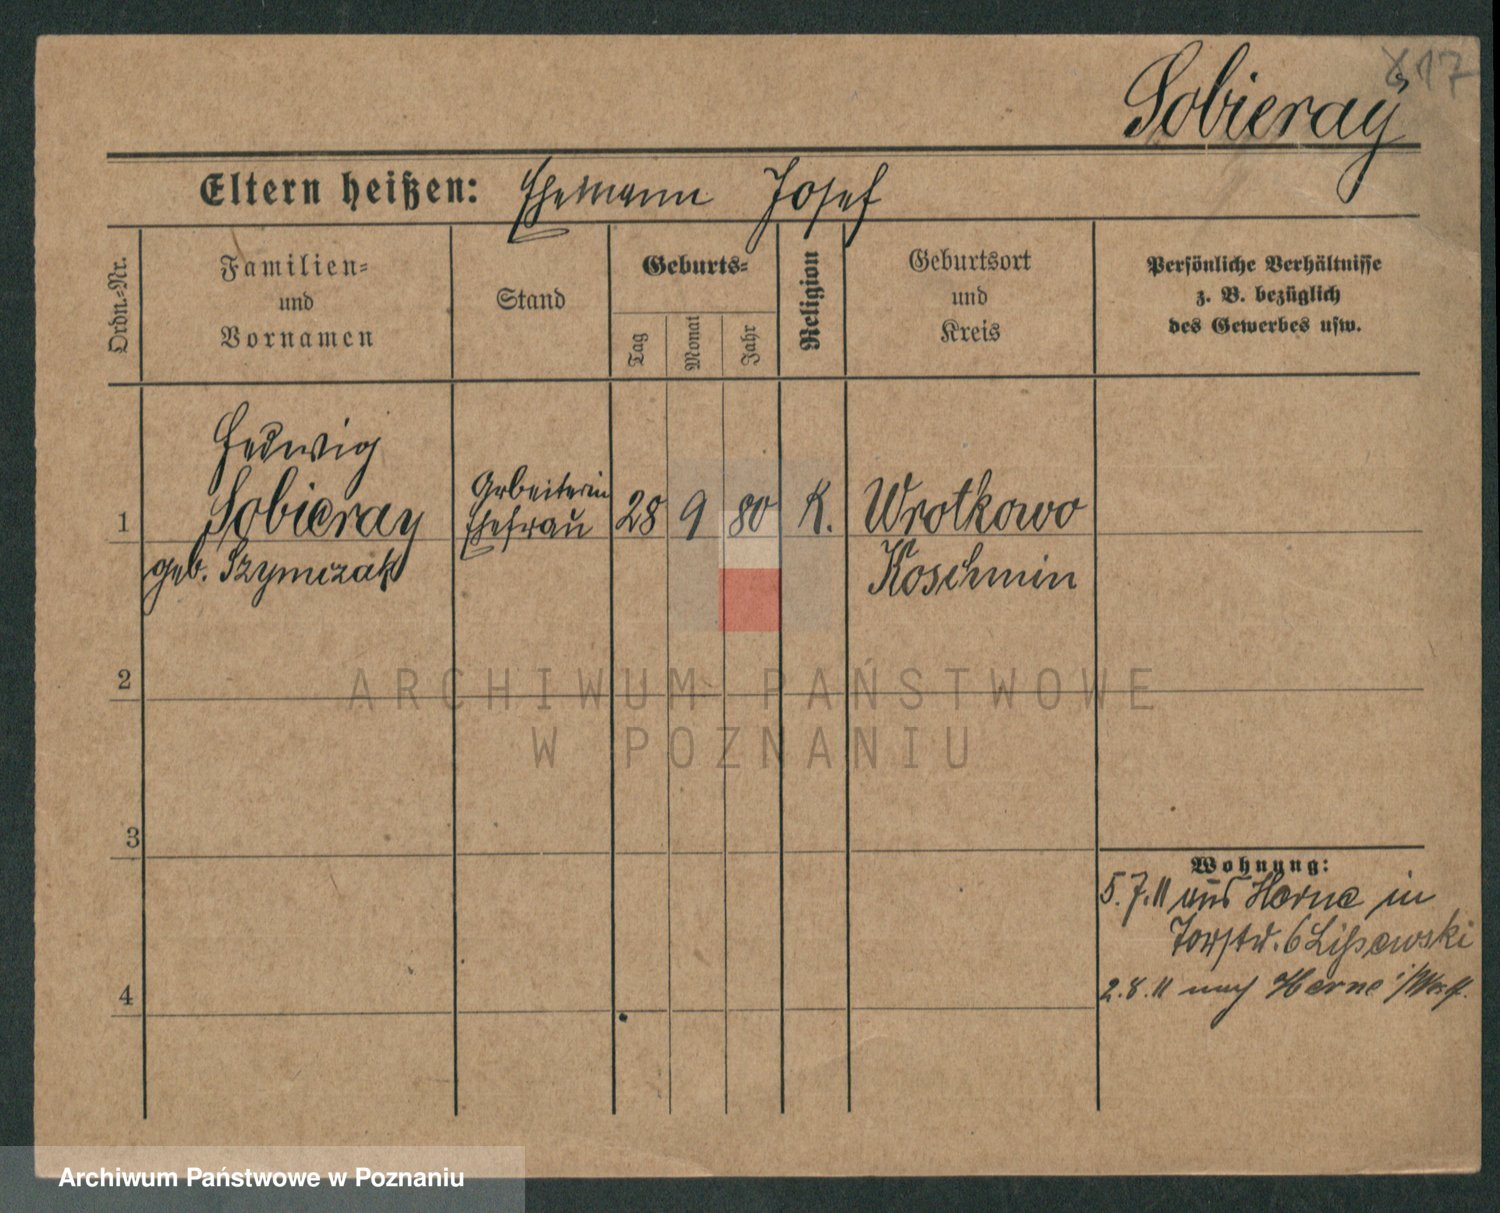 17
Sobieray
Eltern heißen: Ehemann Josef
Ordn.-Nr.
Familien-
und
Vornamen
Stand
Geburts-
Tag
Monat
Jahr
Religion
Geburtsort
und
Kreis
Persönliche Verhältnisse
z. B. bezüglich
des Gewerbes usw.
Hedwig
1 Sobieray
geb. Szymczak
Arbeiterin
Ehefrau
28 9 80 K. Wrotkowo
Koschmin
2
3
4
Wohnung:
5.7.11 aus Herne in
6 Lissewski
2.8.11 nach Herne i/Westf.
ARCHIWUM PAŃSTWOWE
W POZNANIU
Archiwum Państwowe w Poznaniu